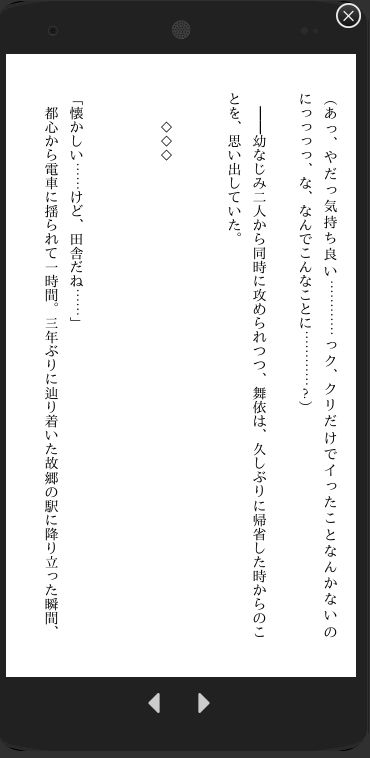 (あっ、やだっ気持ち良い…………っク、クリだけでイったことなんかないの
にっっっっ、な、なんでこんなことに…………?)
――幼なじみ二人から同時に攻められつつ、舞依は、久しぶりに帰省した時からのこ
とを、思い出していた。
◇◇◇
「懐かしい……けど、田舎だね……」
都心から電車に揺られて一時間。三年ぶりに辿り着いた故郷の駅に降り立った瞬間、